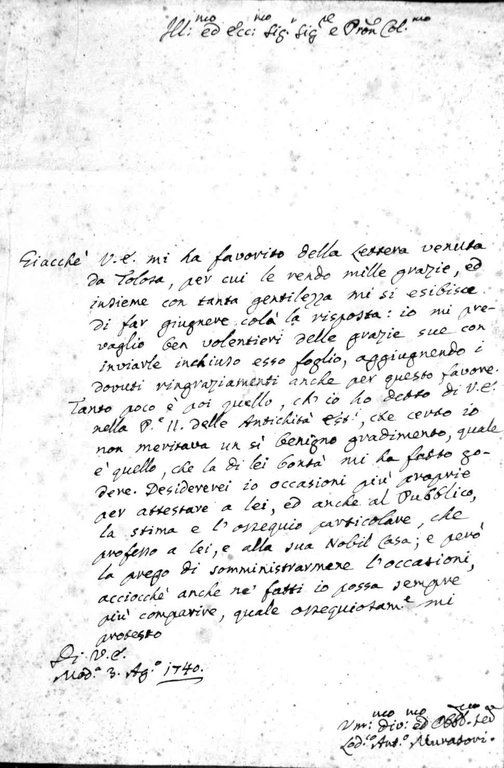 Ill:mo ed Ecc:mo Sig.r Sig.re e Pron Col.mo
Giacché V.E. mi ha favorito della Lettera venuta
da Tolosa, per cui le rendo mille grazie, ed
insieme con tanta gentilezza mi si esibisce
di far giugnere colà la risposta: io mi pre-
vaglio ben volentieri delle grazie sue con
inviarle inchiuso esso foglio, aggiugnendo i
dovuti ringraziamenti anche per questo favore.
Tanto poco è poi quello, ch'io ho detto di V.E.
nella P.e II. delle Antichità Est.i, che certo io
non meritava un sì benigno gradimento, quale
è quello, che la di lei bontà mi ha fatto go-
dere. Desidererei io occasioni più proprie
per attestare a lei, ed anche al Pubblico,
la stima e l'ossequio particolare, che
professo a lei, e alla sua Nobil Casa; e però
la prego di somministrarmene l'occasioni,
acciocché anche ne' fatti io possa sempre
più comparire, quale ossequiosam.e mi
protesto
Di V.E.
Mod.a 3. Ag.o 1740.
Um:mo Div:mo ed Obb.mo Ser
Lod.o Ant.o Muratori.